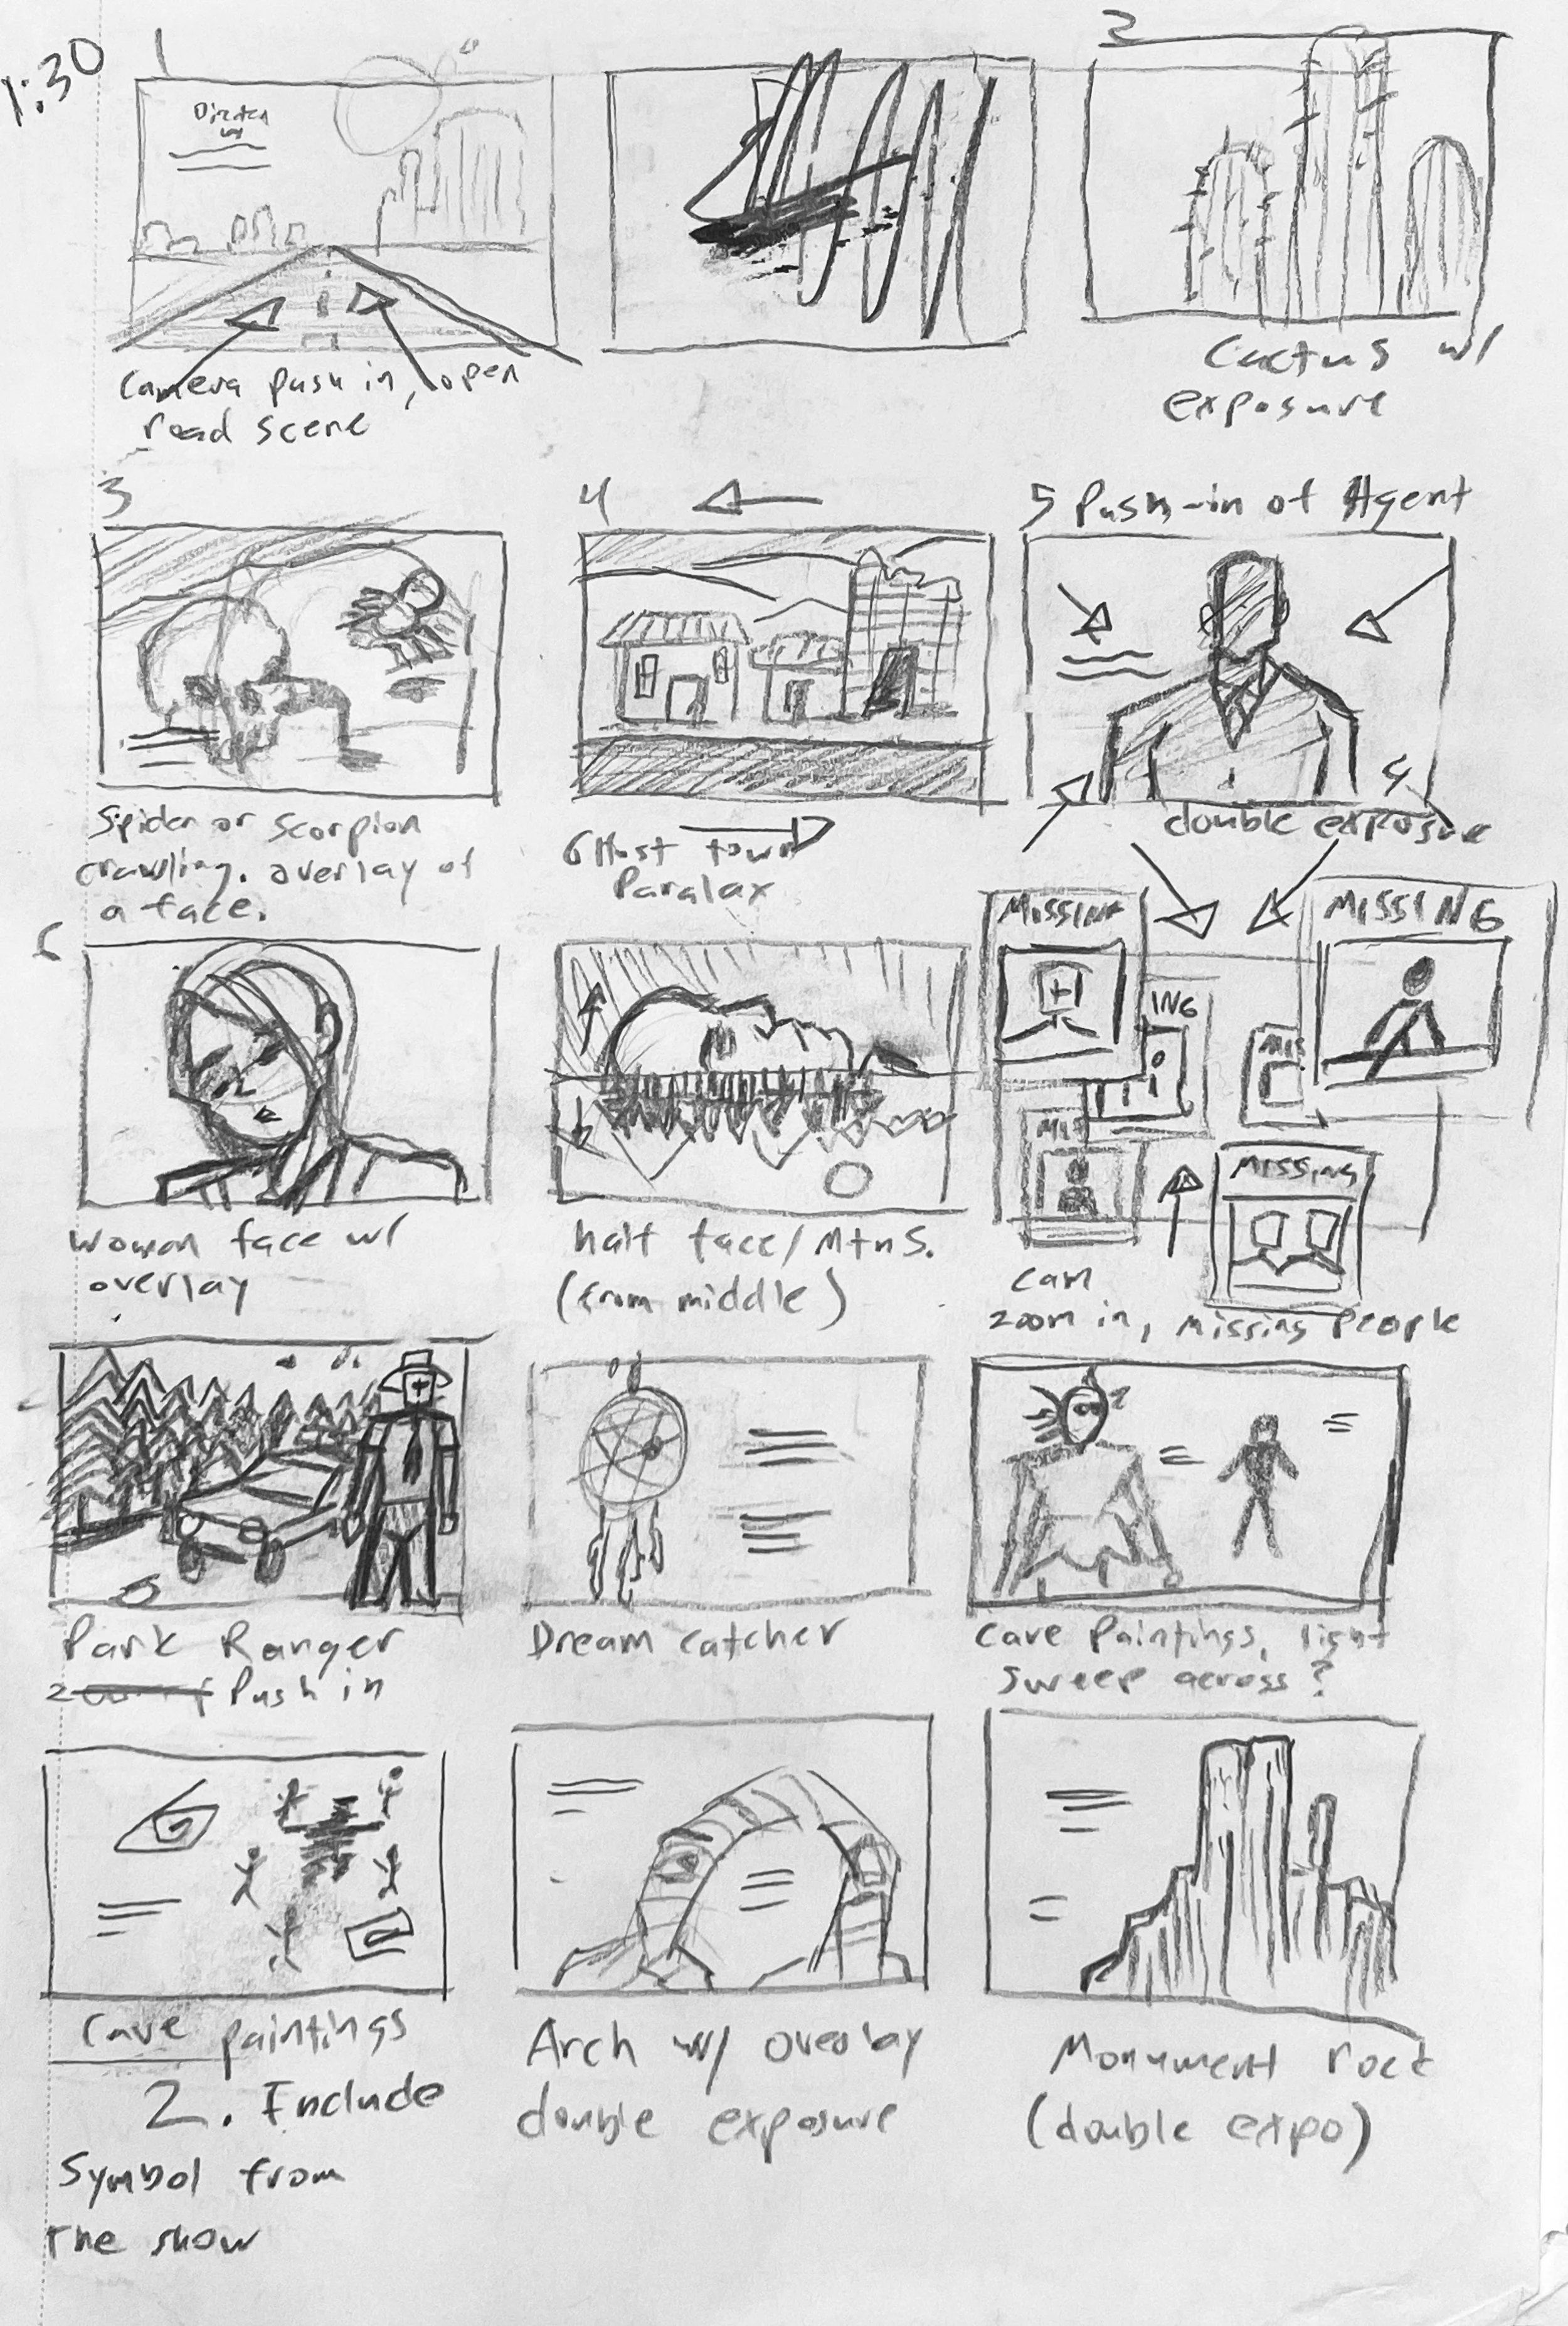 1:30
1
Director
camera push in, open
road scene
2
Cactus w/
exposure
3
Spider or scorpion
crawling. overlay of
a face.
4
Ghost town
Paralax
5 Push-in of Agent
double exposure
6
Woman face w/
overlay
half face/Mtns.
(from middle)
MISSING
MISSING
ING
MIS
MIS
MISSING
cam
zoom in, missing people
Park Ranger
Push in
Dream catcher
Cave Paintings, light
sweep across?
Cave paintings
2. Include
Symbol from
The show
Arch w/ overlay
double exposure
Monument rock
(double expo)